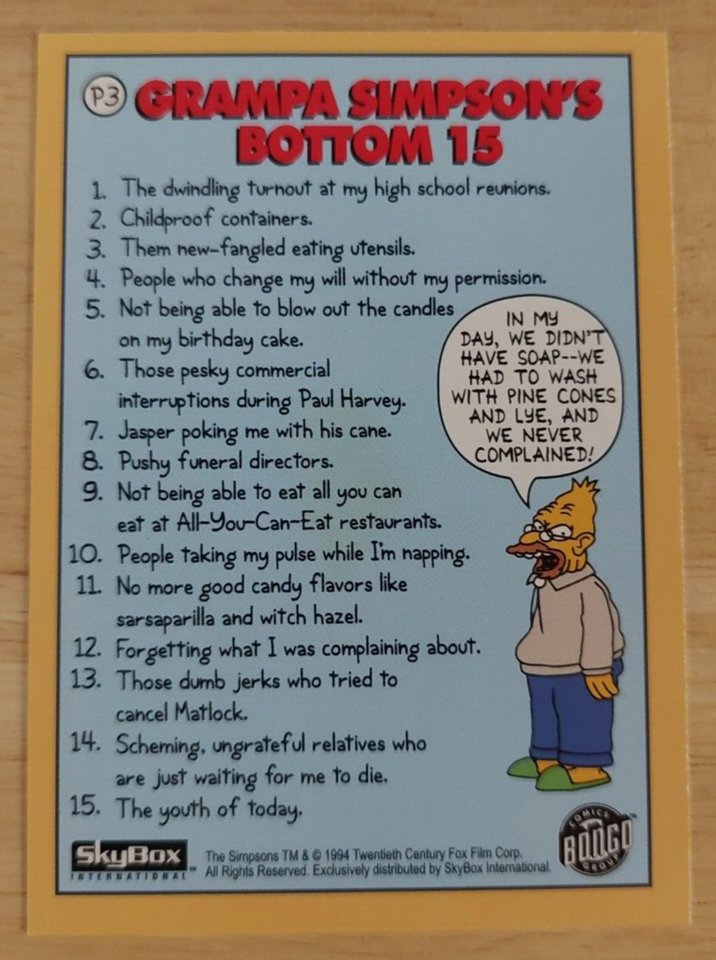 P3 GRAMPA SIMPSON'S
BOTTOM 15
1. The dwindling turnout at my high school reunions.
2. Childproof containers.
3. Them new-fangled eating utensils.
4. People who change my will without my permission.
5. Not being able to blow out the candles
on my birthday cake.
6. Those pesky commercial
interruptions during Paul Harvey.
7. Jasper poking me with his cane.
8. Pushy funeral directors.
9. Not being able to eat all you can
eat at All-You-Can-Eat restaurants.
10. People taking my pulse while I'm napping.
11. No more good candy flavors like
sarsaparilla and witch hazel.
12. Forgetting what I was complaining about.
13. Those dumb jerks who tried to
cancel Matlock.
14. Scheming, ungrateful relatives who
are just waiting for me to die.
15. The youth of today.
IN MY
DAY, WE DIDN'T
HAVE SOAP--WE
HAD TO WASH
WITH PINE CONES
AND LYE, AND
WE NEVER
COMPLAINED!
SkyBox
INTERNATIONAL™
The Simpsons TM & © 1994 Twentieth Century Fox Film Corp.
All Rights Reserved. Exclusively distributed by SkyBox International.
COMICS
BONGO™
GROUP